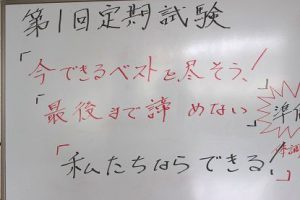 第1回定期試験
「今できるベストを尽そう!
「最後まで諦めない
準
体調
「私たちならできる!